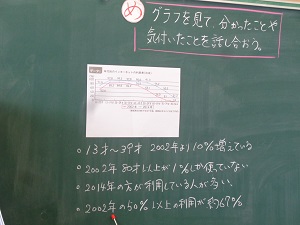 め
グラフを見て、分かったことや
気付いたことを話し合おう。
○13才～39才 2002年より10%増えている
○2002年 80才以上が1%しか使っていない
○2014年の方が利用している人が多い。
○2002年の50%以上の利用が約67%